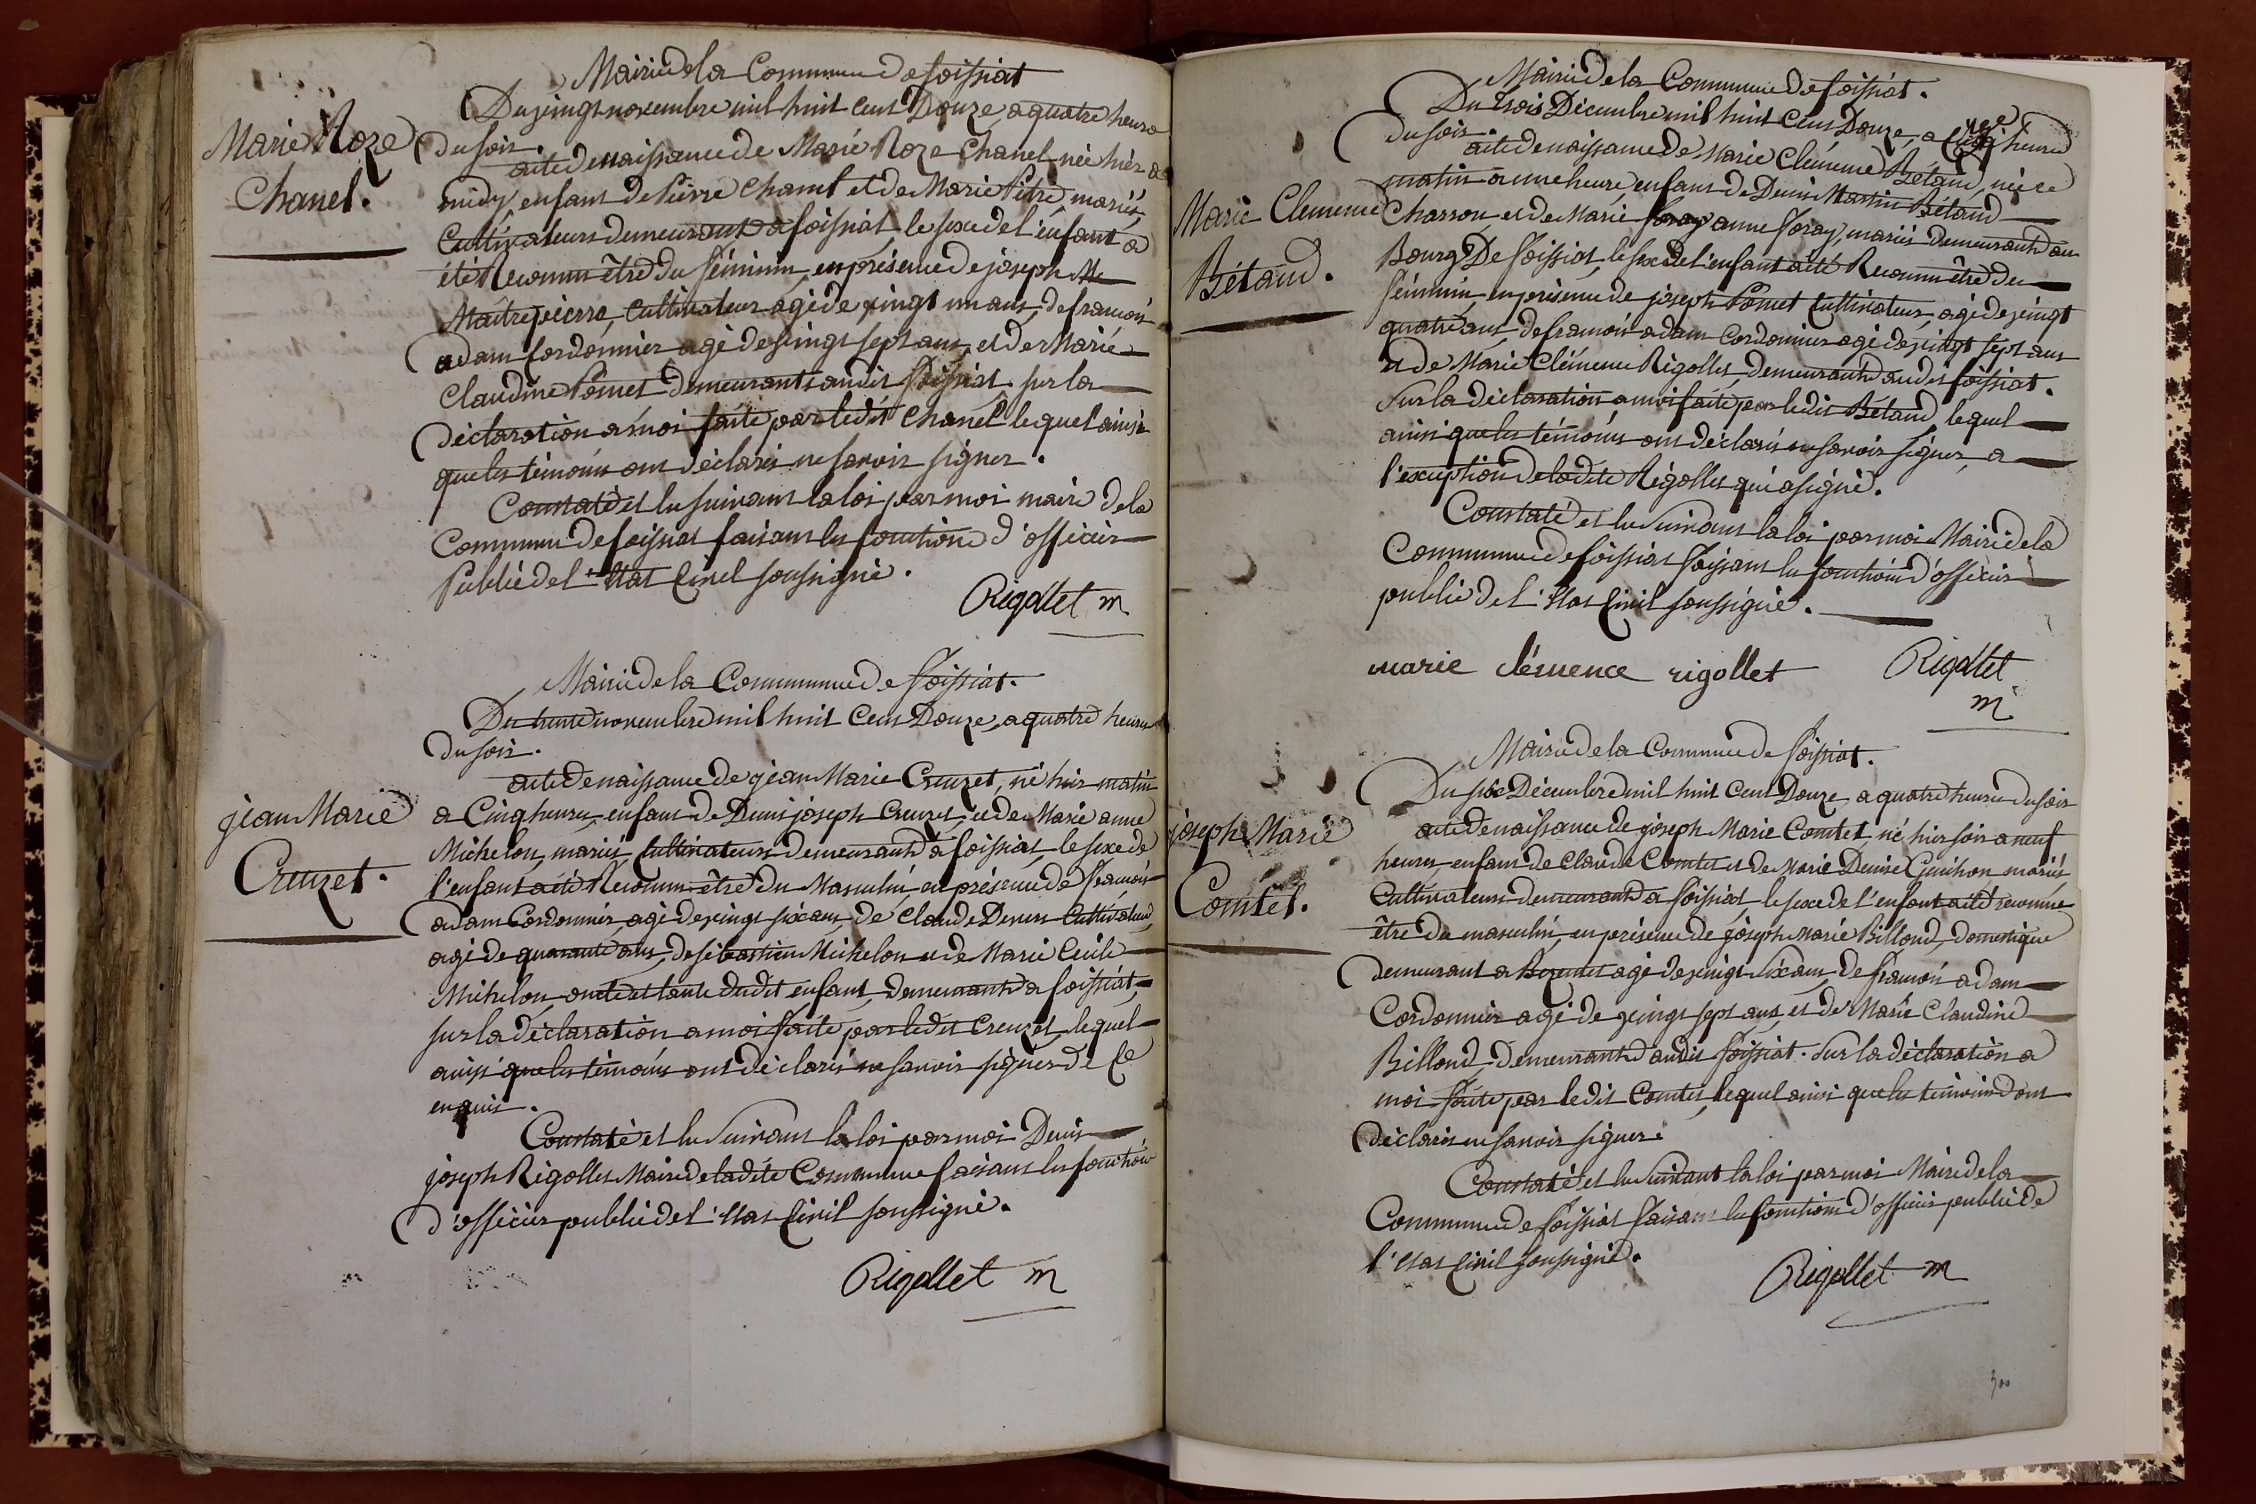 Mairie de la Commune de foissiat
Du vingt novembre mil huit Cent Douze, a quatre heures
du soir.
acte de naissance de Marie Roze Chanel née hièr a
midy, enfant de Pierre Chanel et de Marie Pitre, mariés
Cultivateurs demeurant a foissiat, le sexe de l'enfant a
été Reconnu être du féminin, en présence de joseph M
Maitrepierre, Cultivateur agé de vingt un ans, de francois
adam Cordonnier agé de vingt sept ans, et de Marie
Claudine Pomet demeurants audit foissiat sur la
déclaration a moi faite par ledit Chanel lequel ainsi
que les témoins ont déclarés ne savoir signer.
Constaté et lu suivant la loi par moi maire de la
Commune de foissiat faisant les fonctions d'officier
Public de l'Etat Civil soussigné.
Rigollet m
Marie Roze
Chanel.
Mairie de la Commune de foissiat.
Du trente novembre mil huit Cent Douze, a quatre heures
du soir.
acte de naissance de jean Marie Creuzet, né hier matin
a Cinq heures, enfant de Denis joseph Creuzet, et de Marie anne
Michelon, mariés, Cultivateurs demeurants à foissiat, le sexe de
l'enfant a été Reconnu être du Masculin en présence de francois
adam Cordonnier, agé de vingt six ans, de Claude Cultivateur,
agé de quarante ans, de sébastien Michelon et de Marie Cecile
Michelon, oncle et tante dudit enfant, demeurants a foissiat,
sur la déclaration a moi faite par ledit Creuzet, lequel
ainsi que les témoins ont déclarés ne savoir signer de Ce
enquis.
Constaté et lu suivant la loi par moi Denis
joseph Rigollet Maire de ladite Commune faisant les fonctions
d'officier public de l'Etat Civil soussigné.
Rigollet m
jean Marie
Creuzet.
Mairie de la Commune de foissiat.
Du trois Décembre mil huit Cent Douze, a heures
du soir.
acte de naissance de Marie Clémence Bétand, née ce
matin a une heure, enfant de Denis Martin Bétand
Charron, et de Marie foray anne foray, mariés demeurants au
Bourg De foissiat, le sexe de l'enfant a été Reconnu être du
féminin, en présence de joseph Pomet Cultivateur, agé de vingt
quatre ans, de francois adam Cordonnier agé de vingt sept ans
et de Marie Clémence Rigollet, demeurants audit foissiat.
Sur la déclaration a moi faite par ledit Bétand, lequel
ainsi que les témoins ont déclarés ne savoir signer, a
l'exception de ladite Rigollet qui a signé.
Constaté et lu suivant la loi par moi Maire de la
Commune de foissiat faisant les fonctions d'officier
public de l'Etat Civil soussigné.
marie clémence rigollet Rigollet
m
Marie Clemence
Bétand.
Mairie de la Commune de foissiat.
Du six Décembre mil huit Cent Douze, a quatre heures du soir
acte de naissance de joseph Marie Comtet, né hier soir a neuf
heures, enfant de Claude Comtet et de Marie Denise Guichon mariés
Cultivateurs demeurants a foissiat le sexe de l'enfant a été reconnu
être du masculin, en présence de joseph Marie Billoud, domestique
demeurant a agé de vingt six ans, de francois adam
Cordonnier agé de vingt sept ans et de Marie Claudine
Billoud, demeurants audit foissiat. Sur la déclaration a
moi faite par ledit Comtet, lequel ainsi que les témoins ont
déclarés ne savoir signer.
Constaté et lu suivant la loi par moi Maire de la
Commune de foissiat faisant les fonctions d'officier public de
l'Etat Civil soussigné.
Rigollet m
joseph Marie
Comtet.
300